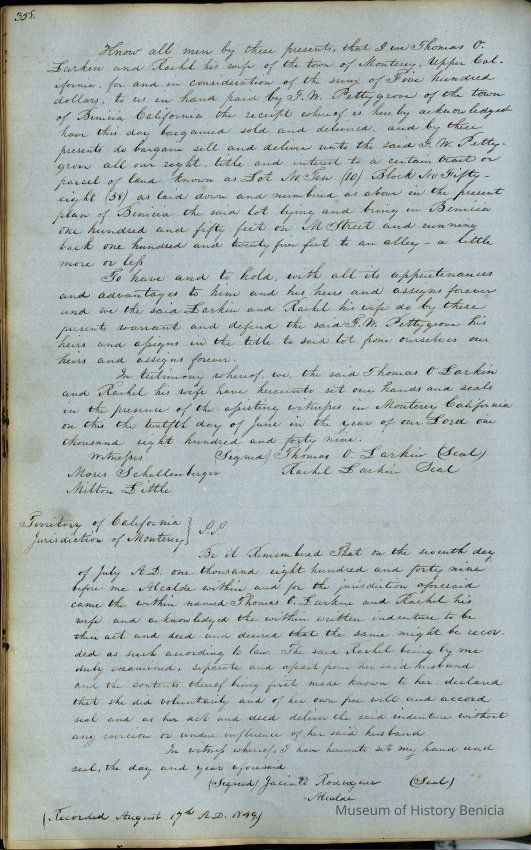 358.
Know all men by these presents, that I we Thomas O.
Larkin and Rachel his wife of the town of Monterey, Upper Cal-
ifornia, for and in consideration of the sum of Five hundred
dollars, to us in hand paid by F. W. Pettygrove of the town
of Benicia California the receipt whereof is hereby acknowledged
have this day bargained sold and delivered, and by these
presents do bargain sell and deliver unto the said F. W. Petty-
grove all our right, title and interest to a certain tract or
parcel of land known as Lot No Ten (10) Block No Fifty-
eight (58) as laid down and numbered as above in the present
plan of Benicia the said lot lying and being in Benicia
one hundred and fifty feet on M Street and running
back one hundred and twenty five feet to an alley - a little
more or less
To have and to hold, with all its appurtenances
and advantages to him and his heirs and assigns forever
and we the said Larkin and Rachel his wife do by these
presents warrant and defend the said F. W. Pettygrove his
heirs and assigns in the title to said lot from ourselves our
heirs and assigns forever.
In testimony whereof, we, the said Thomas O Larkin
and Rachel his wife have hereunto set our hands and seals
in the presence of the attesting witnesses in Monterey California
on this the twelfth day of June in the year of our Lord one
thousand eight hundred and forty nine.
Witnesses (Signed) Thomas O. Larkin (Seal)
Moses Schallenberger Rachel Larkin Seal
Milton Little
Territory of California }
Jurisdiction of Monterey } S.S.
Be it Remembered That on the seventh day
of July A.D. one thousand eight hundred and forty nine
before me Alcalde within and for the jurisdiction aforesaid
came the within named Thomas O. Larkin and Rachel his
wife and acknowledged the within written indenture to be
their act and deed and desired that the same might be recor-
ded as such according to law. The said Rachel being by me
duly examined, separate and apart from her said husband
and the contents thereof being first made known to her, declared
that she did voluntarily and of her own free will and accord
seal and as her act and deed deliver the said indenture without
any coercion or undue influence of her said husband
In witness whereof, I have hereunto set my hand and
seal, the day and year aforesaid
(Signed) Jacinto Rodriguez (Seal)
Alcalde
(Recorded August 17th A.D. 1849)
Museum of History Benicia